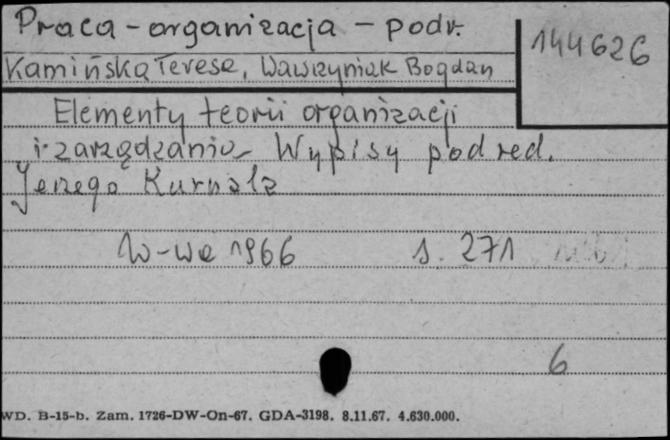 Praca - organizacja - podr.
144626
Kamińska Teresa, Wawrzyniak Bogdan
Elementy teorii organizacji
i zarządzania Wypisy pod red.
Jerzego Kurnala
W-wa 1966 s. 271
6
WD. B-15-b. Zam. 1726-DW-On-67. GDA-3198. 8.11.67. 4.630.000.